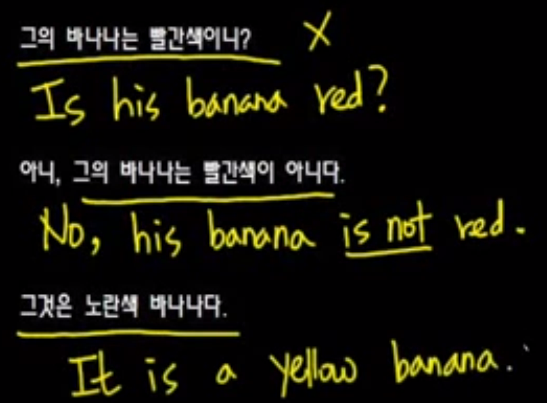 그의 바나나는 빨간색이니? X
Is his banana red?
아니, 그의 바나나는 빨간색이 아니다.
No, his banana is not red.
그것은 노란색 바나나다.
It is a yellow banana.